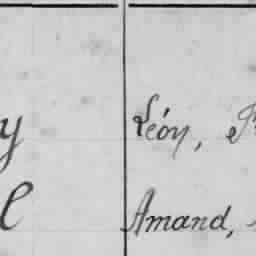 y Léon,
l Amand,